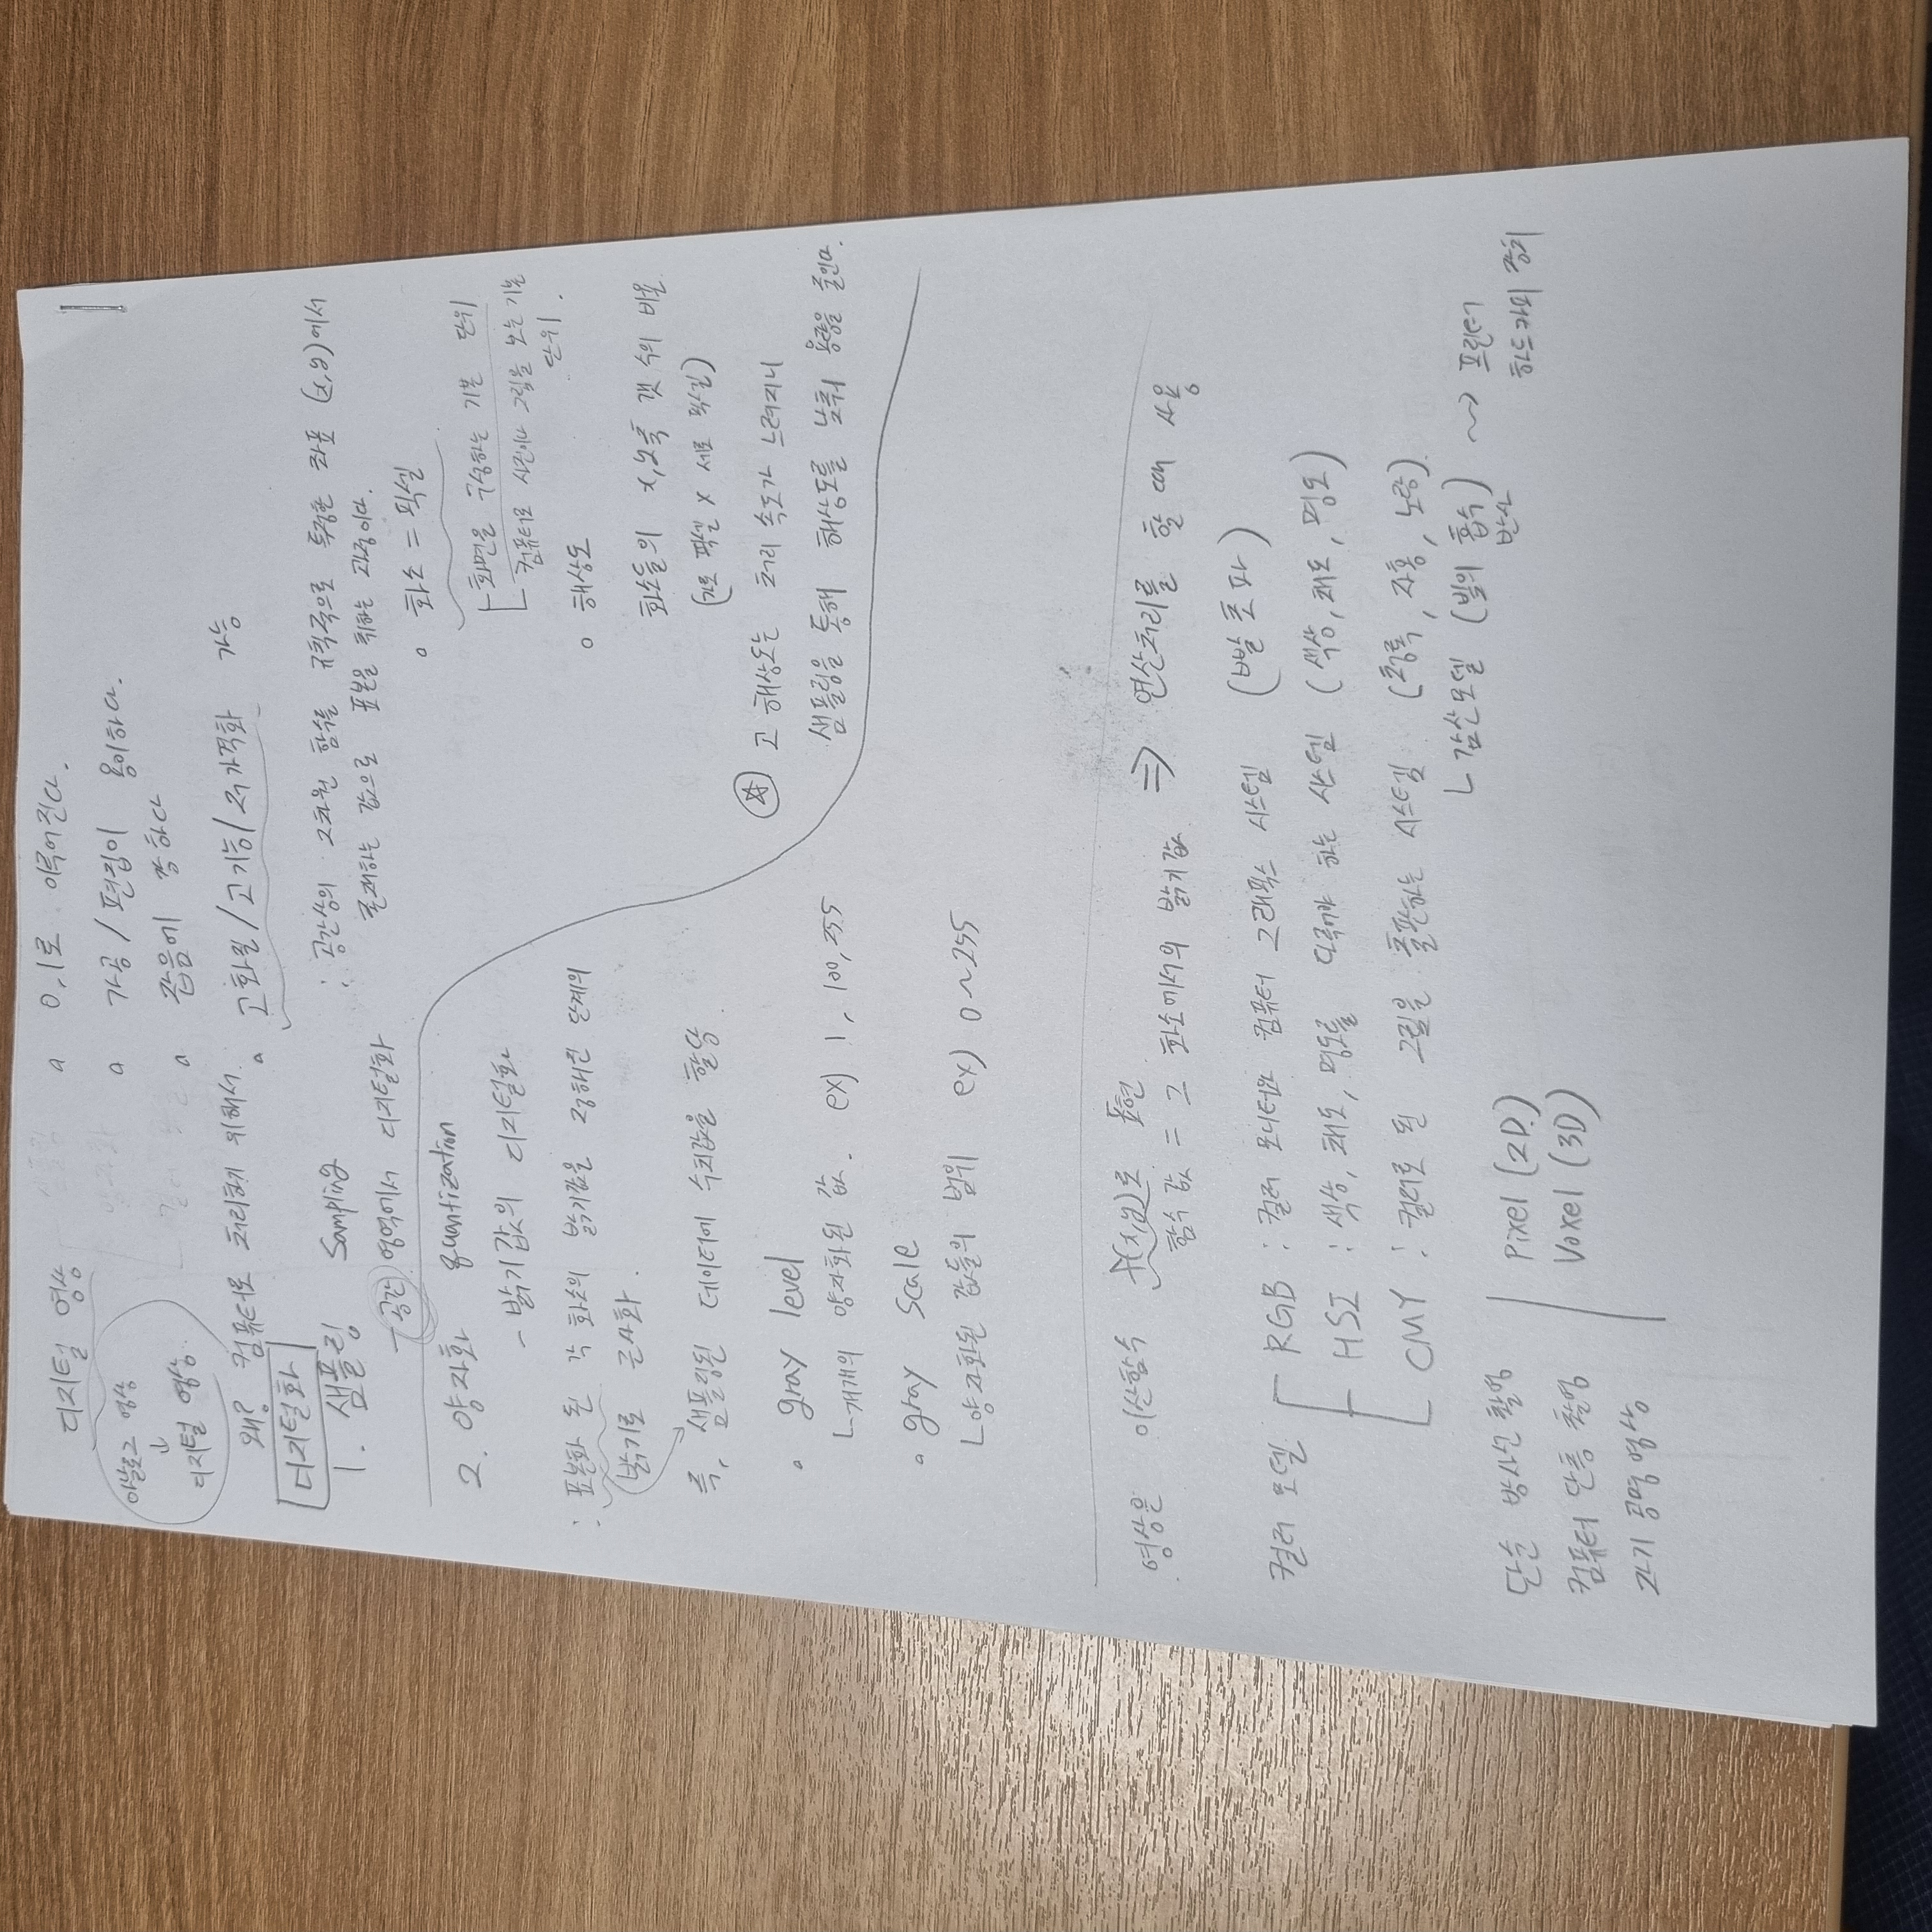 디지털 영상
아날로그 영상
↓
디지털 영상
왜? 컴퓨터로 처리하기 위해서
0,1로 이루어진다.
가공 / 편집이 용이하다.
잡음에 강하다
고화질/고기능/저가격화 가능
디지털화
1. 샘플링 Sampling
- 공간 영역에서 디지털화
: 공간상의 2차원 함수를 규칙적으로 특정한 좌표 (x,y)에서
존재하는 값으로 표본을 취하는 과정이다.
화소 = 픽셀
화면을 구성하는 기본 단위
컴퓨터로 사진이나 그림을 보는 기본
단위.
해상도
화소들의 x,y축 갯수의 비율
(가로 픽셀 x 세로 픽셀)
☆ 고 해상도는 처리 속도가 느려지니
샘플링을 통해 해상도를 낮춰 용량을 줄인다.
2. 양자화 quantization
- 밝기값의 디지털화
: 표본화 된 각 화소의 밝기값을 정해진 단계의
밝기로 근사화.
즉, 샘플링된 데이터에 수치값을 할당
gray level
개개의 양자화된 값. ex) 1, 100, 255
gray scale
양자화된 값들의 범위 ex) 0~255
영상은 이산함수 f(x,y)로 표현
함수 값 = 그 화소에서의 밝기값
⇒ 연산처리를 할 때 사용
컬러 모델
RGB : 컬러 모니터와 컴퓨터 그래픽스 시스템 (빨초파)
HSI : 색상, 채도, 명도를 다루어야 하는 시스템 (색상, 채도, 명도)
CMY : 컬러로 된 그림을 출판하는 시스템 (청록, 자홍, 노랑).
감산모델 (빛의 흡수) ~> 프린터
반사 하드카피 장치
단순 방사선 촬영
컴퓨터 단층 촬영
자기 공명 영상
Pixel (2D.)
Voxel (3D)